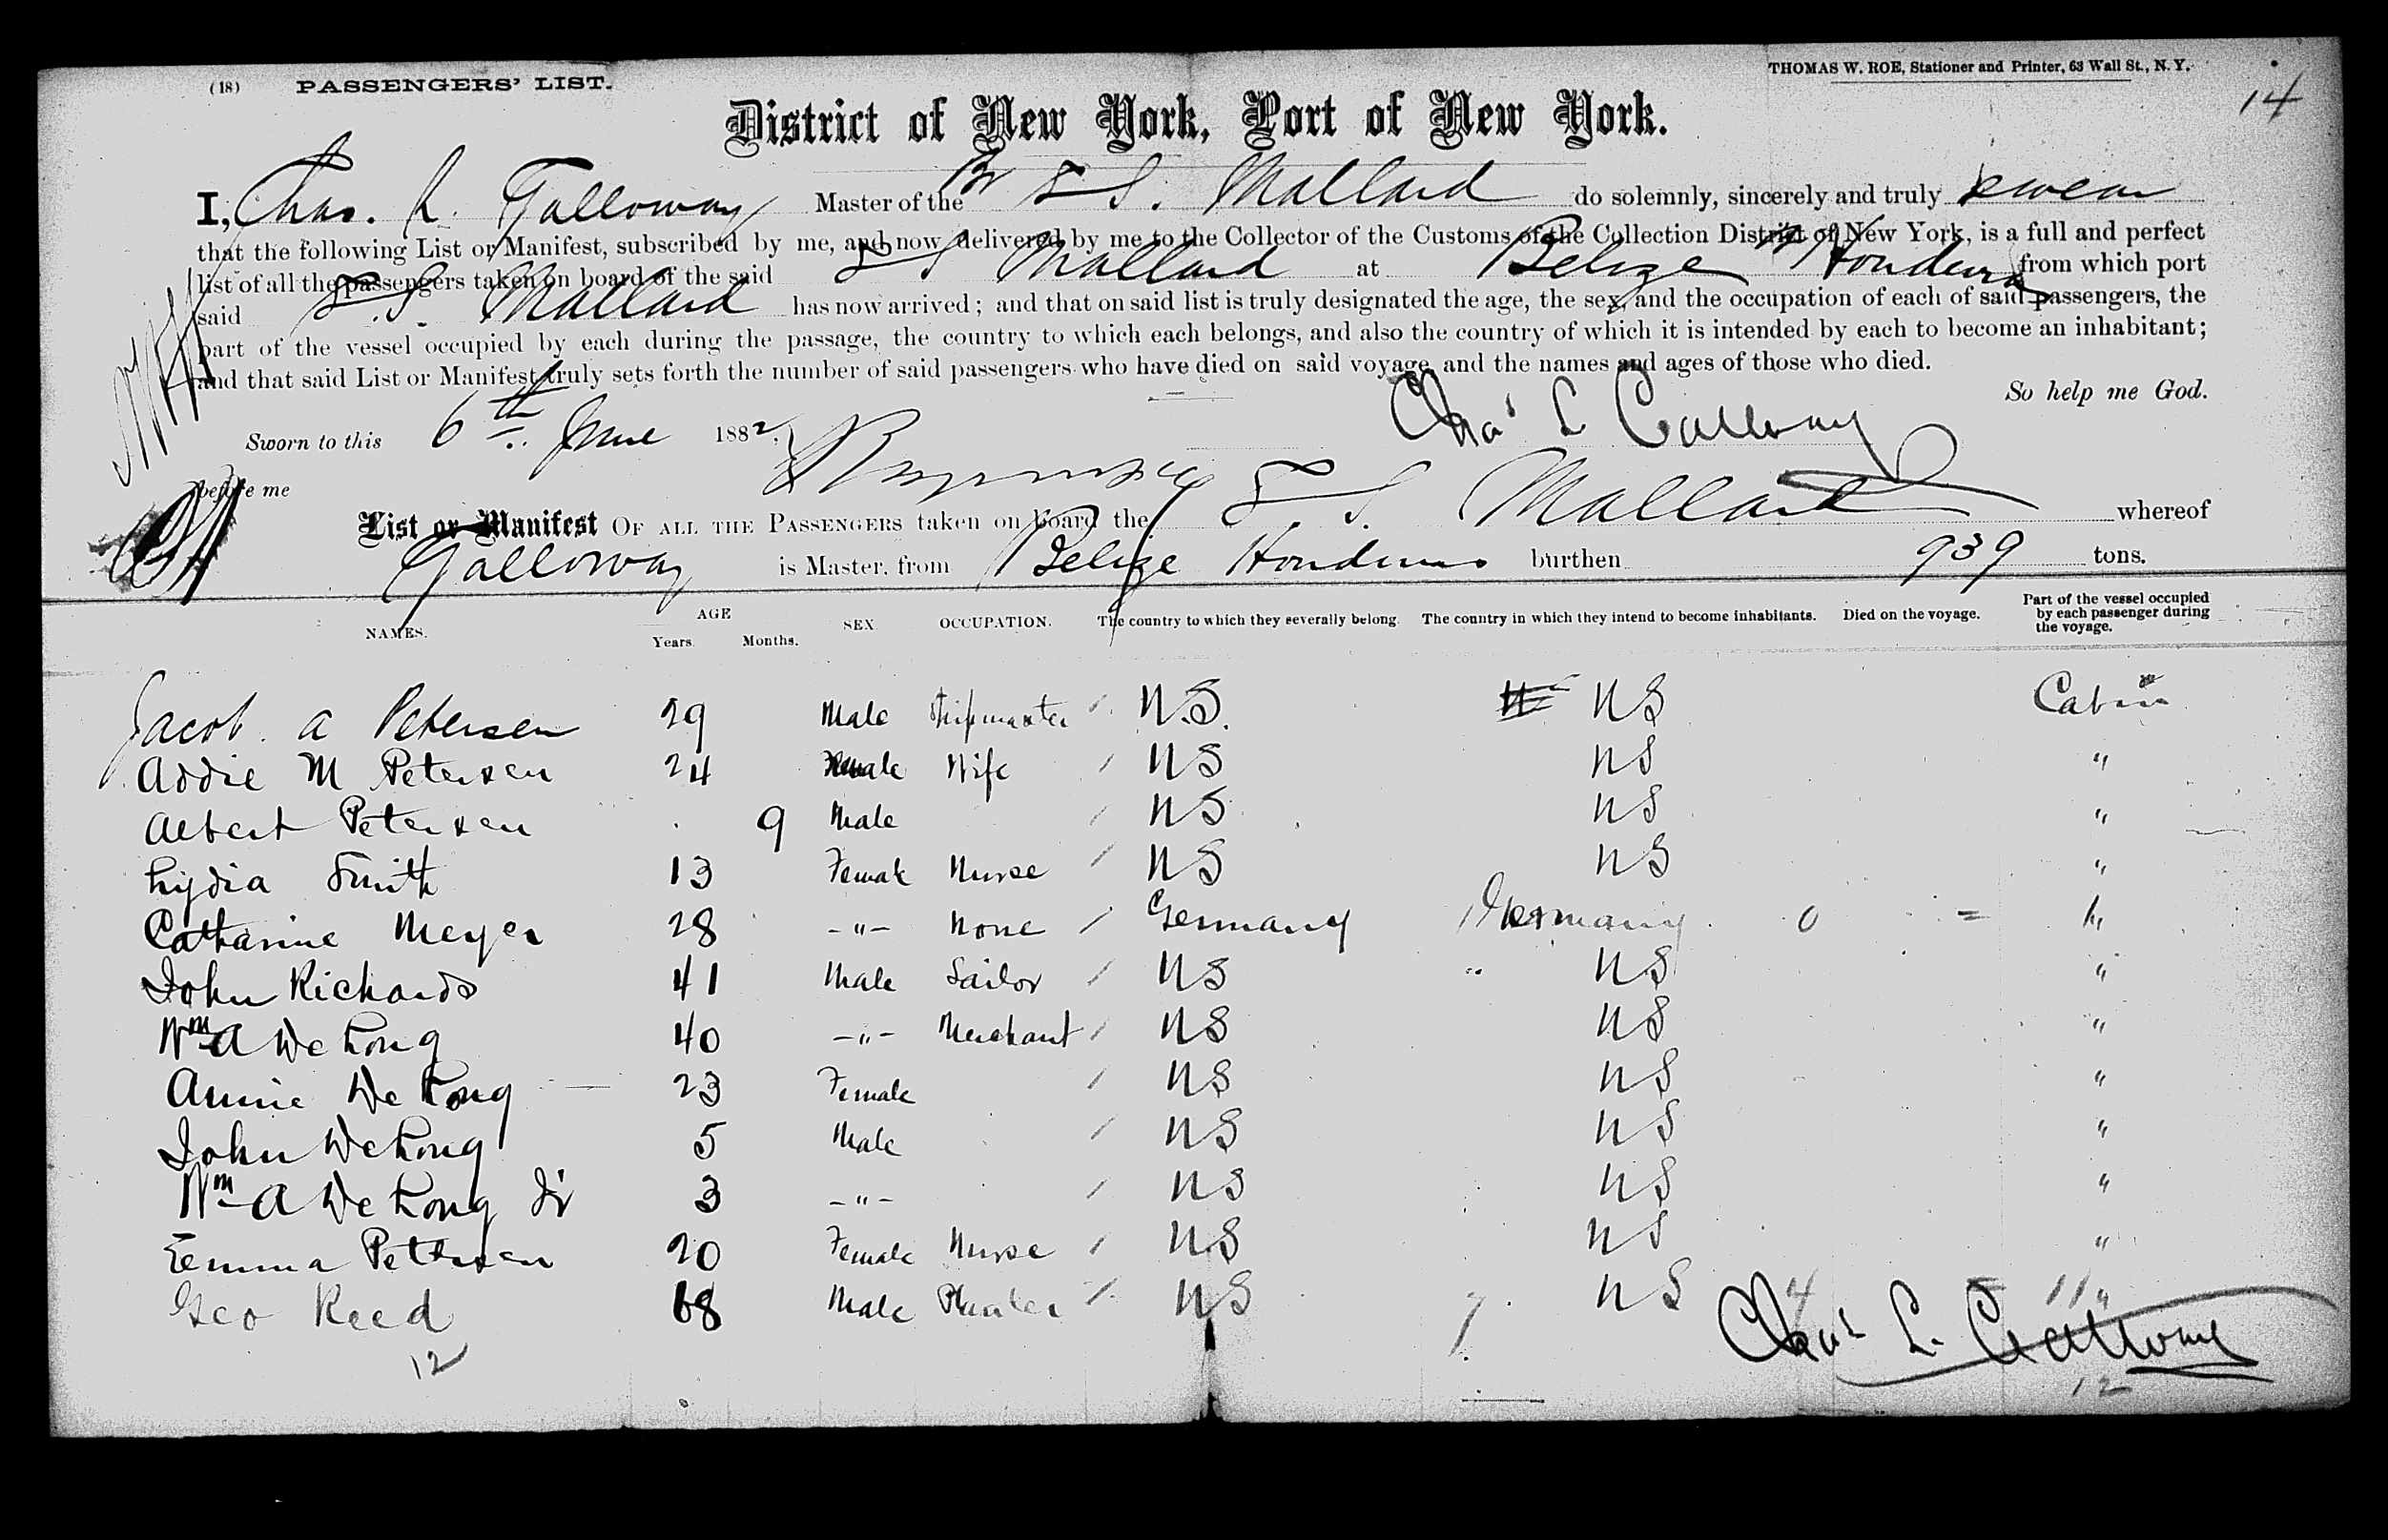 (18) PASSENGERS' LIST.
THOMAS W. ROE, Stationer and Printer, 63 Wall St., N. Y.
14
District of New York, Port of New York.
I, Chas. L. Galloway Master of the Br S S. Mallard do solemnly, sincerely and truly swear
that the following List or Manifest, subscribed by me, and now delivered by me to the Collector of the Customs of the Collection District of New York, is a full and perfect
list of all the passengers taken on board of the said S S Mallard at Belize Honduras from which port
said S.S. Mallard has now arrived; and that on said list is truly designated the age, the sex, and the occupation of each of said passengers, the
part of the vessel occupied by each during the passage, the country to which each belongs, and also the country of which it is intended by each to become an inhabitant;
and that said List or Manifest truly sets forth the number of said passengers who have died on said voyage, and the names and ages of those who died.
So help me God.
Sworn to this 6th June 1882, Chas L Galloway
before me
List or Manifest OF ALL THE PASSENGERS taken on board the S S. Mallard whereof
Galloway is Master, from Belize Honduras burthen 939 tons.
NAMES. AGE Years. Months. SEX OCCUPATION. The country to which they severally belong. The country in which they intend to become inhabitants. Died on the voyage. Part of the vessel occupied by each passenger during the voyage.
Jacob. A Petersen 29 Male Shipmaster N.S. NS Cabin
Addie M Petersen 24 Female Wife NS NS "
Albert Petersen 9 Male NS NS "
Lydia Smith 13 Female Nurse NS NS "
Catharine Meyer 28 -"- None Germany Germany 0 = "
John Richards 41 Male Sailor NS NS "
Wm A DeLong 40 -"- Merchant NS NS "
Annie DeLong 23 Female NS NS "
John DeLong 5 Male NS NS "
Wm A DeLong Jr 3 -"- NS NS "
Emma Petersen 20 Female Nurse NS NS "
Geo Reed 68 Male Planter NS NS "
Chas L. Galloway
12
12